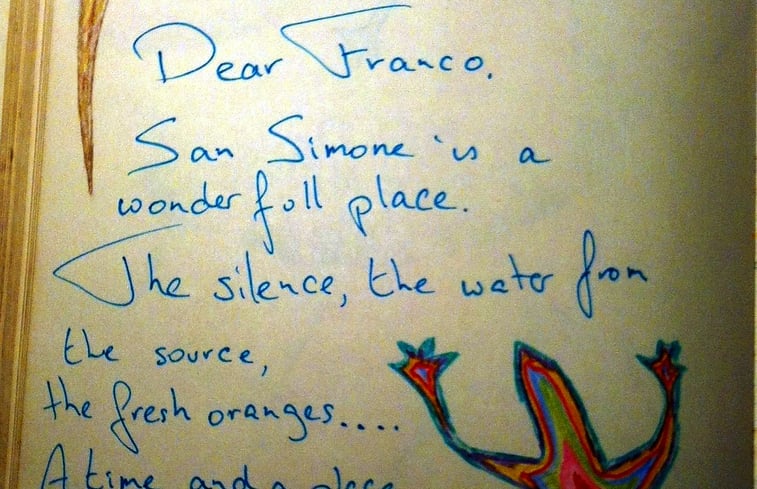 Dear Franco.
San Simone is a
wonderfull place.
The silence, the water from
the source,
the fresh oranges....
A time and a place